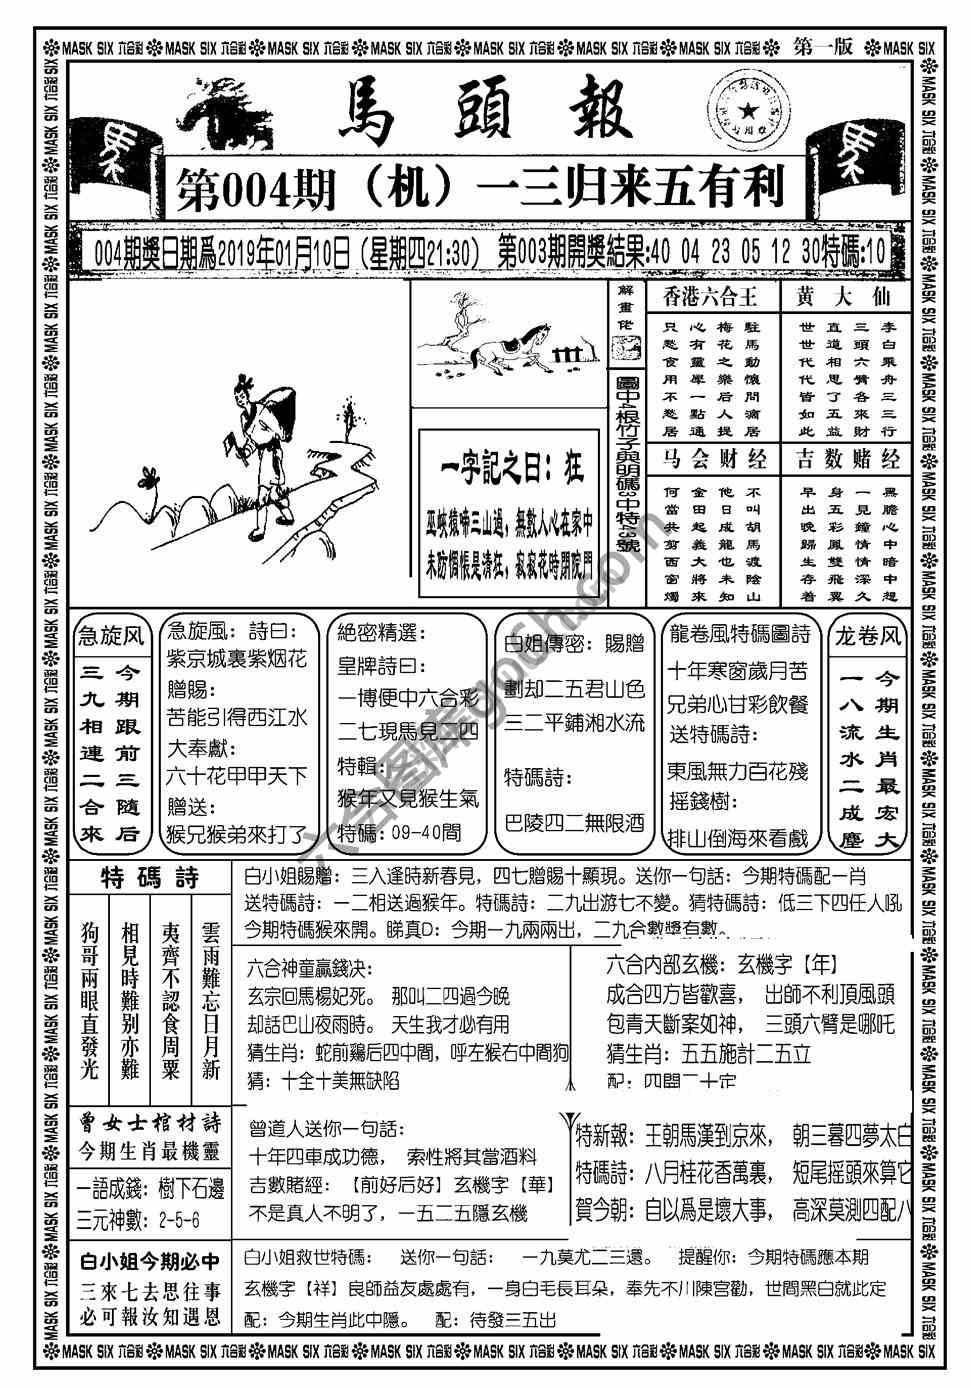 MASK SIX 六合彩 MASK SIX 六合彩 MASK SIX 六合彩 MASK SIX 六合彩 MASK SIX 六合彩 MASK SIX 六合彩 MASK SIX 六合彩 第一版 MASK SIX
馬頭報
第004期（机）一三归来五有利
004期獎日期爲2019年01月10日（星期四21:30） 第003期開獎結果:40 04 23 05 12 30特碼:10
解畫佬
圖中4根竹子與明碼83中特43號
一字記之日：狂
巫峽猿啼三山過，無數人心在家中
未防惆悵是清狂，寂寂花時閉院門
香港六合王
駐馬動懷問滴居
梅花之樂后人提
心有靈犀一點通
只愁食用不愁居
黄大仙
李白乘舟三三行
三頭六臂各來財
直道相思了五益
世世代代皆如此
马会财经
不叫胡馬渡陰山
他日成龍也未知
金田起義大將來
何當共剪西窗燭
吉数赌经
黑膽心中暗中想
一見鐘情情深久
身五彩鳳雙飛翼
早出晚歸生存着
急旋风
今期跟前三隨后
三九相連二合來
急旋風：詩曰：
紫京城裏紫烟花
贈賜：
苦能引得西江水
大奉獻：
六十花甲甲天下
贈送：
猴兄猴弟來打了
絕密精選：
皇牌詩曰：
一博便中六合彩
二七現馬見二四
特輯：
猴年又見猴生氣
特碼：09-40間
白姐傳密：賜贈
劃却二五君山色
三二平鋪湘水流
特碼詩：
巴陵四二無限酒
龍卷風特碼圖詩
十年寒窗歲月苦
兄弟心甘彩飲餐
送特碼詩：
東風無力百花殘
摇錢樹：
排山倒海來看戲
龙卷风
今期生肖最宏大
一八流水二成塵
特碼詩
雲雨難忘日月新
夷齊不認食周粟
相見時難别亦難
狗哥兩眼直發光
白小姐賜贈：三入逢時新春見，四七贈賜十顯現。送你一句話：今期特碼配一肖
送特碼詩：一二相送過猴年。特碼詩：二九出游七不變。猜特碼詩：低三下四任人吼
今期特碼猴來開。睇真D：今期一九兩兩出，二九合數獎有數。
六合神童贏錢决：
玄宗回馬楊妃死。 那叫二四過今晚
却話巴山夜雨時。 天生我才必有用
猜生肖：蛇前鷄后四中間，呼左猴右中間狗
猜：十全十美無缺陷
六合内部玄機：玄機字【年】
成合四方皆歡喜， 出師不利頂風頭
包青天斷案如神， 三頭六臂是哪吒
猜生肖：五五施計二五立
配：四間二十定
曾女士棺材詩
今期生肖最機靈
一語成錢：樹下石邊
三元神數：2-5-6
曾道人送你一句話：
十年四車成功德， 索性將其當酒料
吉數賭經：【前好后好】玄機字【華】
不是真人不明了，一五二五隱玄機
特新報：王朝馬漢到京來， 朝三暮四夢太白
特碼詩：八月桂花香萬裏， 短尾摇頭來算它
賀今朝：自以爲是壞大事， 高深莫測四配八
白小姐今期必中
三來七去思往事
必可報汝知遇恩
白小姐救世特碼： 送你一句話： 一九莫尤二三還。 提醒你：今期特碼應本期
玄機字【祥】良師益友處處有，一身白毛長耳朵，奉先不川陳宮勸，世間黑白就此定
配：今期生肖此中隱。 配：待發三五出
六合图库gooh.com
MASK SIX 六合彩 MASK SIX 六合彩 MASK SIX 六合彩 MASK SIX 六合彩 MASK SIX 六合彩 MASK SIX 六合彩 MASK SIX 六合彩 MASK SIX 六合彩 MASK SIX